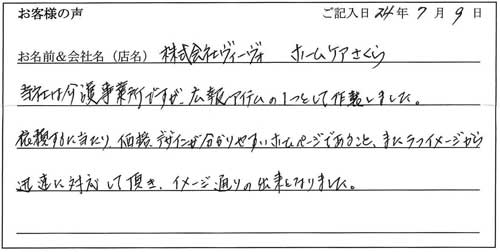 お客様の声 ご記入日 24年 7月 9日
お名前&会社名(店名) 株式会社ヴィーヴォ ホームケアさくら
当社は介護事業所ですが、広報アイテムの1つとして作製しました。
依頼するに当たり、価格、デザインが分かりやすいホームページであること、またラフイメージから
迅速に対応して頂き、イメージ通りの出来となりました。